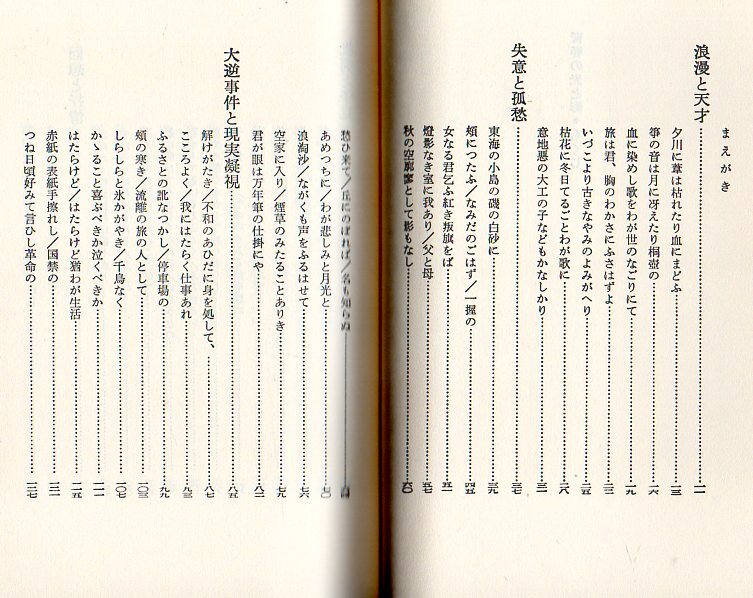 まえがき
浪漫と天才……一一
夕川に葦は枯れたり血にまどふ……一三
箏の音は月に冴えたり桐壺の……一六
血に染めし歌をわが世のなごりにて……一九
旅は君、胸のわかさにふさはずよ……二三
いづこより古きなやみのよみがへり……二五
枯花に冬日てるごとわが歌に……二八
意地悪の大工の子などもかなしかり……三一
失意と孤愁……三七
東海の小島の磯の白砂に……三九
頬につたふ／なみだのごはず／一握の……四五
女なる君乞ふ紅き叛旗をば……五一
燈影なき室に我あり／父と母……五七
秋の空廓寥として影もなし……六〇
愁ひ来て／丘にのぼれば／名も知らぬ……
あめつちに／わが悲しみと月光と……七〇
浪淘沙／ながくも声をふるはせて……七六
空家に入り／煙草のみたることありき……七九
君が眼は万年筆の仕掛にや……八二
大逆事件と現実凝視……八五
解けがたき／不和のあひだに身を処して、……八七
こころよく／我にはたらく仕事あれ……九三
ふるさとの訛なつかし／停車場の……九九
頬の寒き／流離の旅の人として……一〇三
しらしらと氷かがやき／千鳥なく……一〇七
かゝること喜ぶべきか泣くべきか……一一一
はたらけど／はたらけど猶わが生活……一一五
赤紙の表紙手擦れし／国禁の……一二一
つね日頃好みて言ひし革命の……一二七